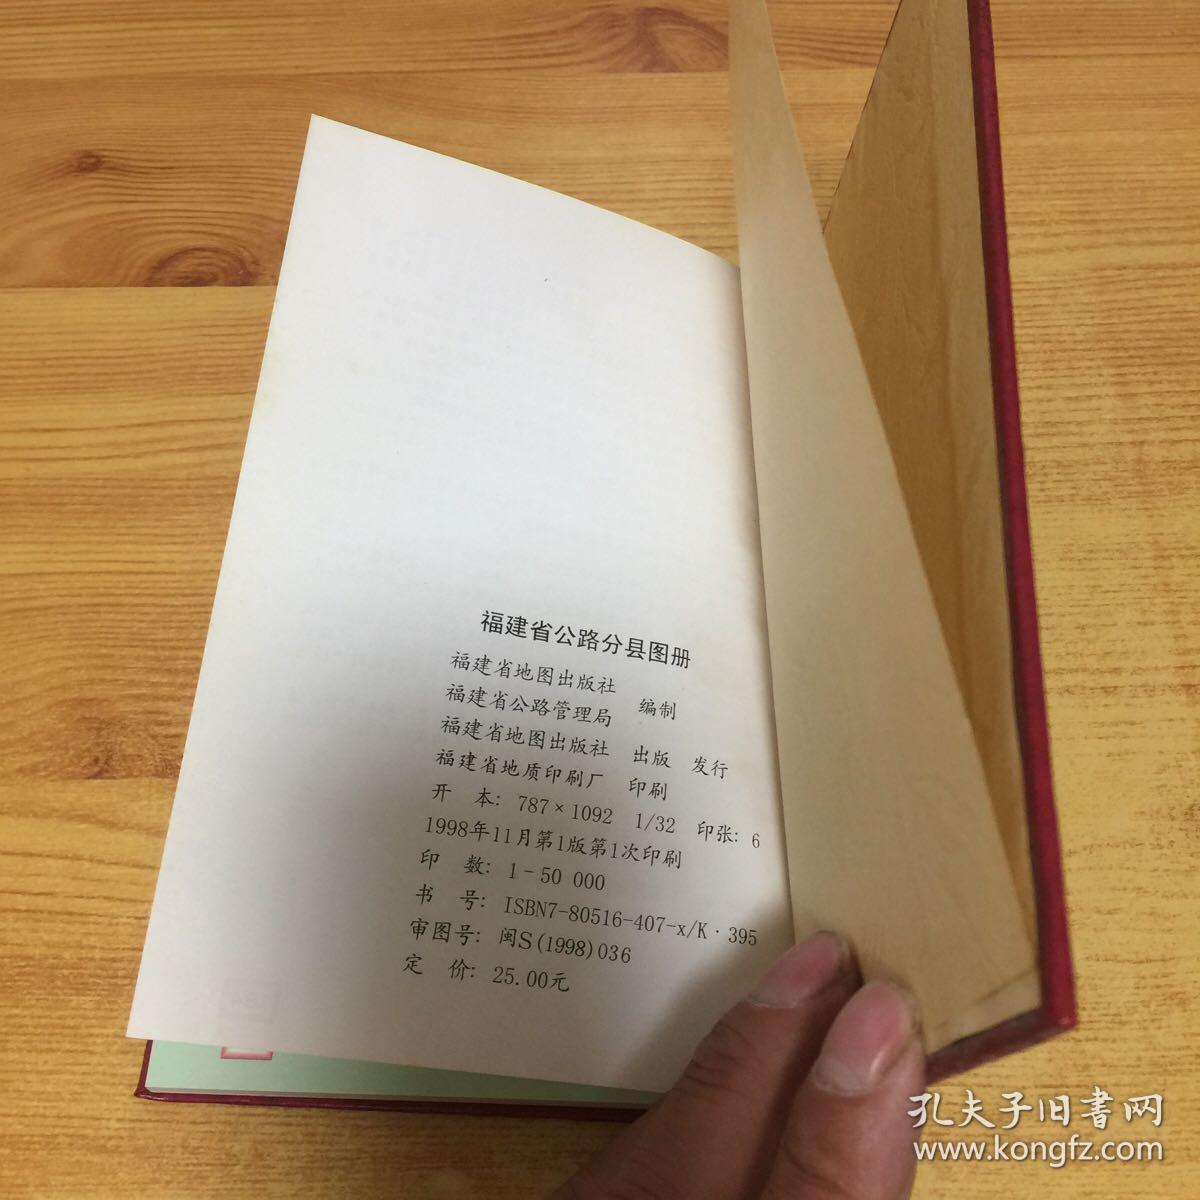 福建省公路分县图册
福建省地图出版社
福建省公路管理局 编制
福建省地图出版社 出版 发行
福建省地质印刷厂 印刷
开 本: 787×1092 1/32 印张: 6
1998年11月第1版第1次印刷
印 数: 1-50 000
书 号: ISBN7-80516-407-x/K·395
审图号: 闽S(1998)036
定 价: 25.00元
孔夫子旧书网
www.kongfz.com